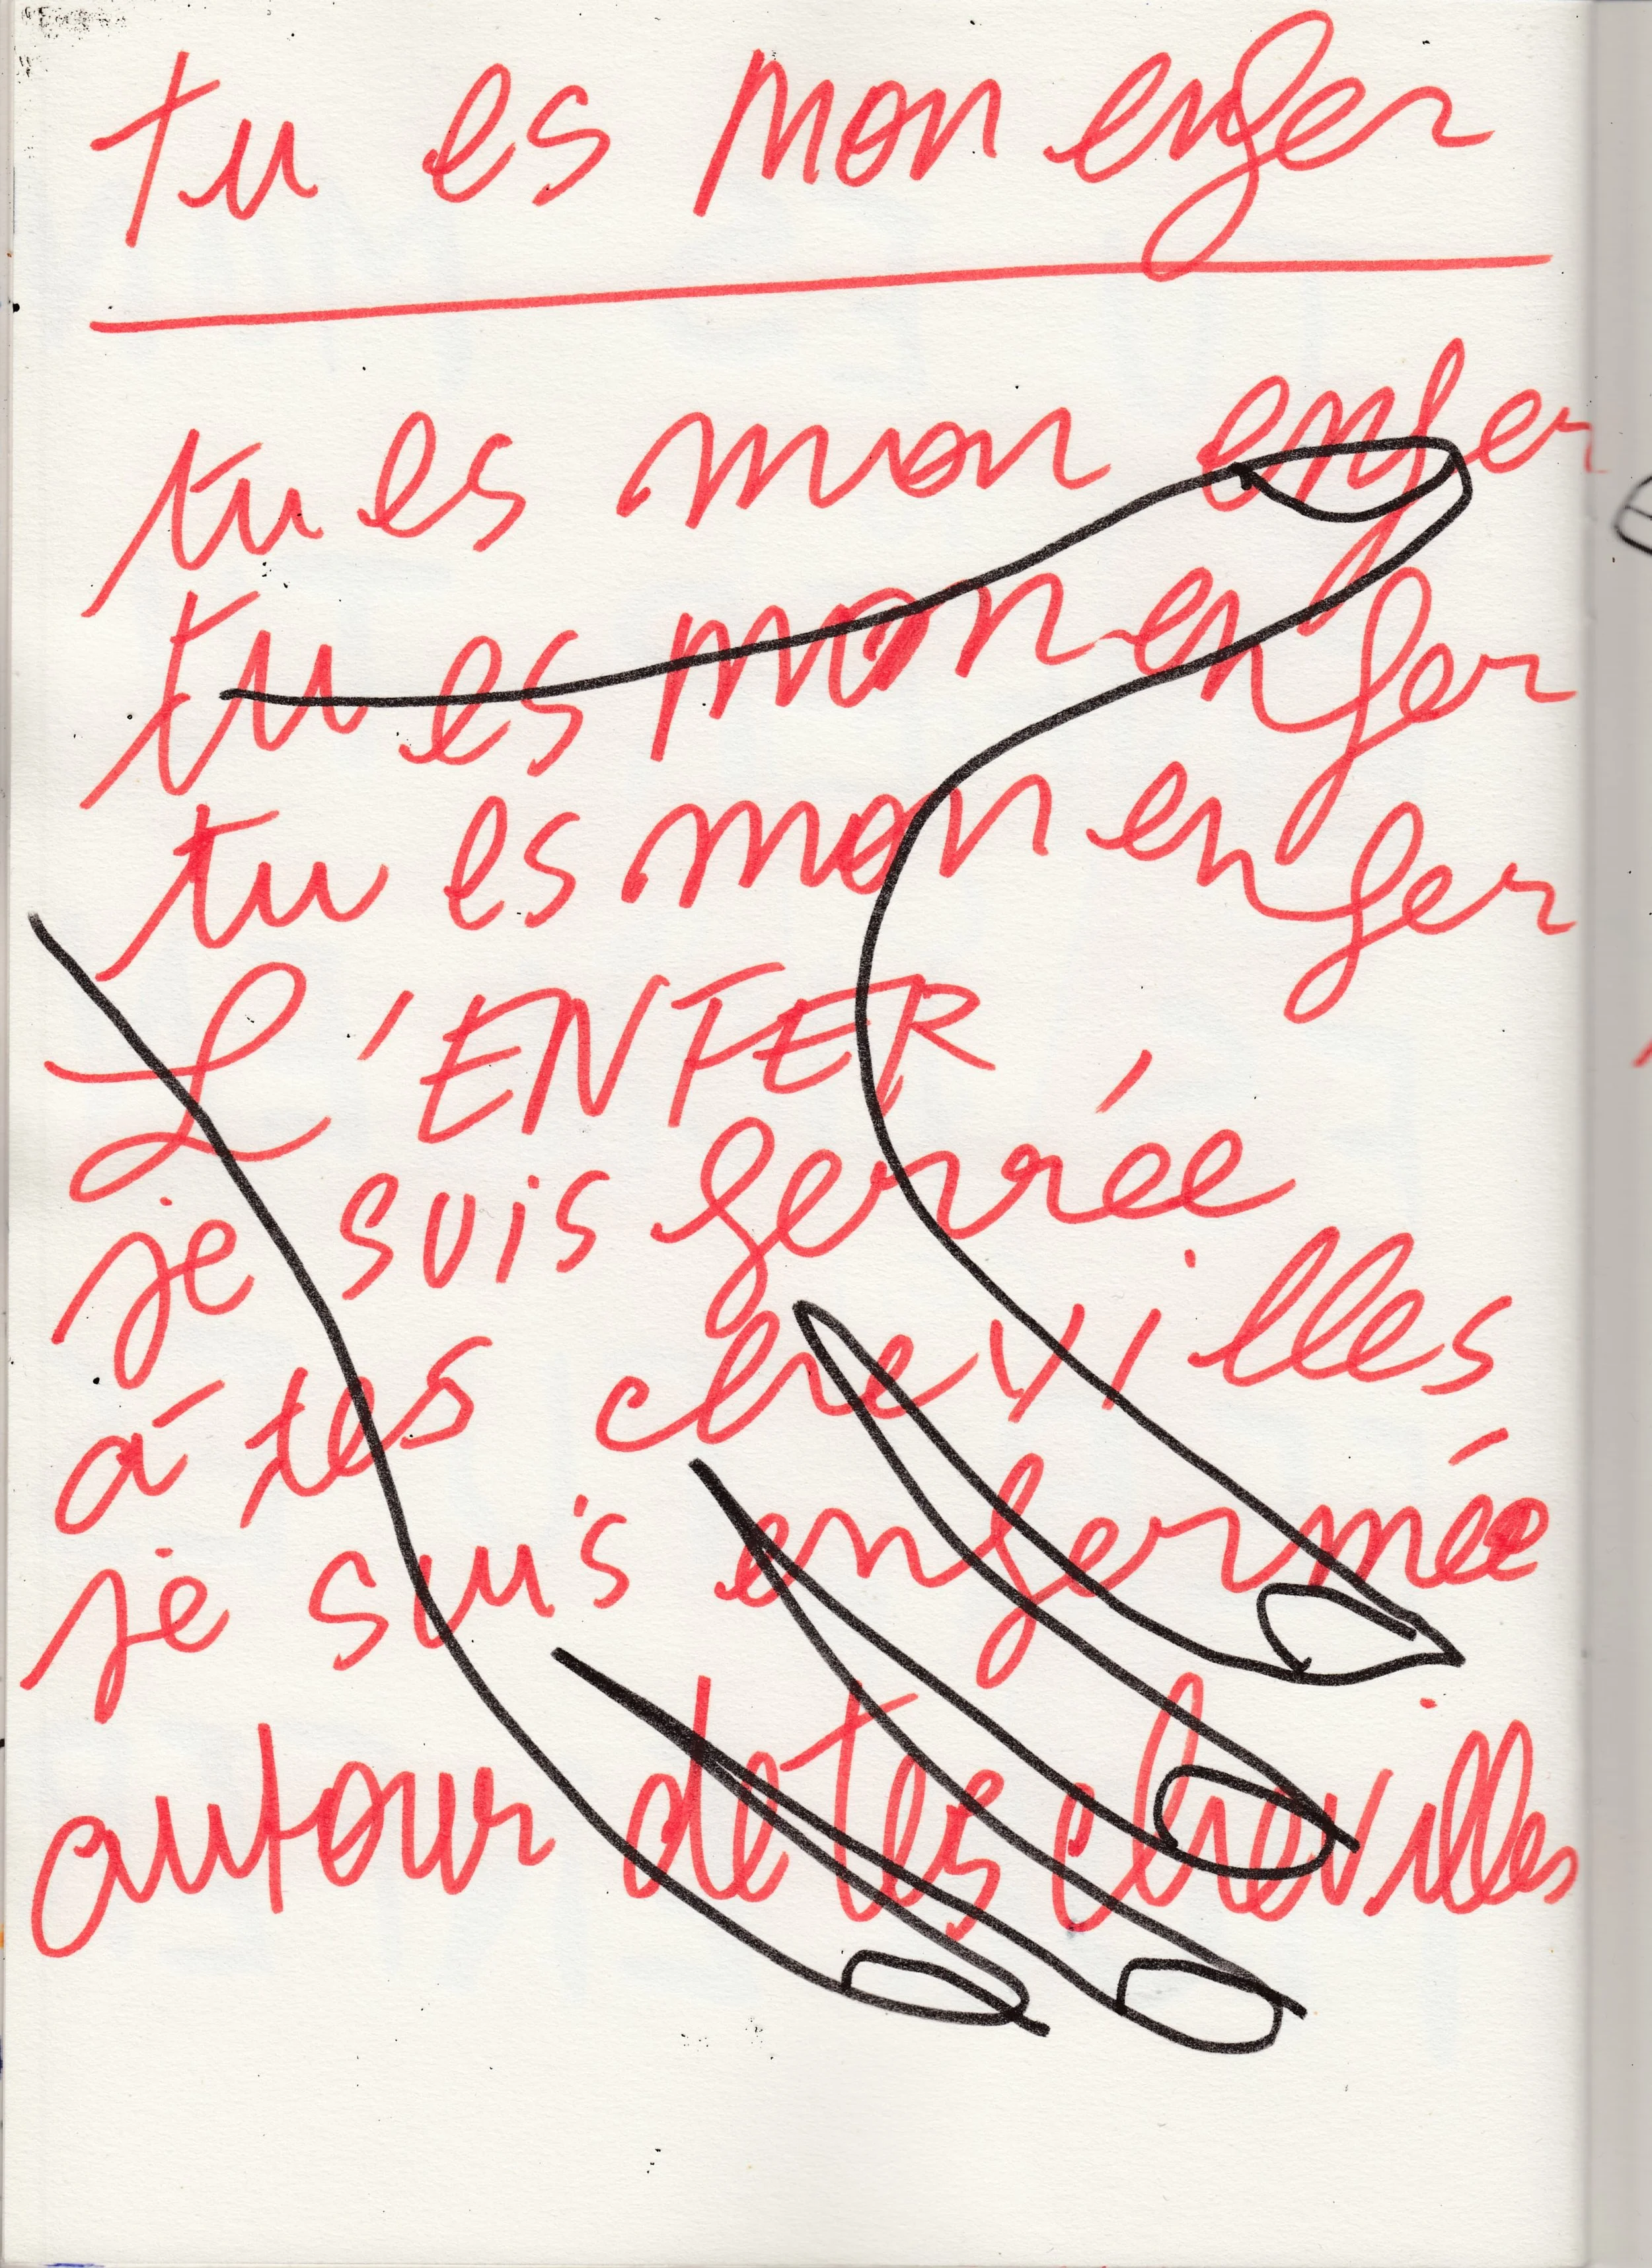 tu es mon enfer
tu es mon enfer
tu es mon enfer
tu es mon enfer
L'ENFER
je suis ferrée
à tes chevilles
je suis enfermée
autour de tes chevilles